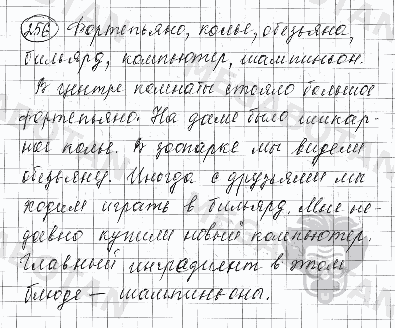 256 Фортепьяно, колье, обезьяна,
бильярд, компьютер, шампиньон.
В центре комнаты стояло большое
фортепьяно. На даме было шикар-
ное колье. В зоопарке мы видели
обезьяну. Иногда с друзьями мы
ходим играть в бильярд. Мне не-
давно купили новый компьютер.
Главный инградиент в этом
блюде – шампиньоны.